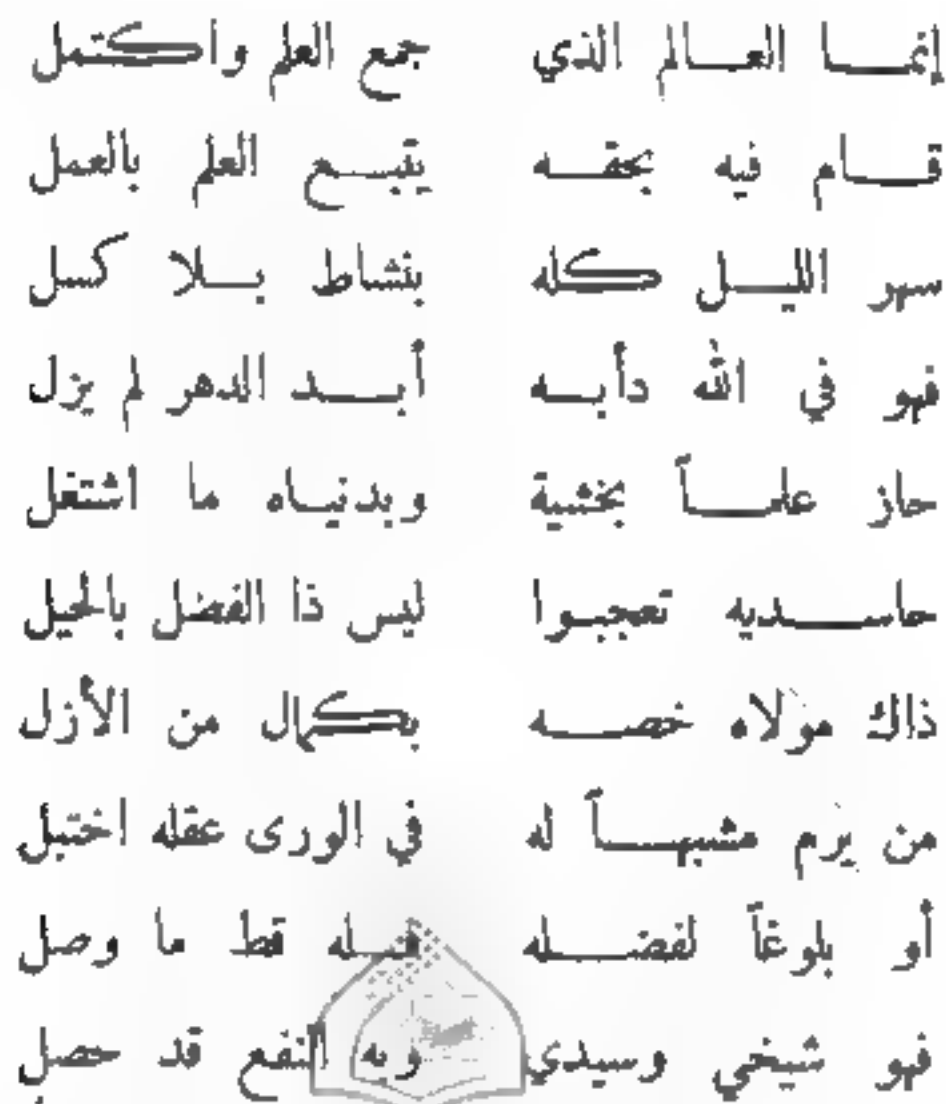 إنمـــا العـــالم الذي جمع العلم واكتمل
قـــام فيه بحقـــه يتبـــع العلم بالعمل
سهر الليـــل كله بنشاط بـــلا كسل
فهو في الله دأبـــه أبـــد الدهر لم يزل
حاز علمـــاً بخشية وبدنيـــاه ما اشتغل
حاســـديه تعجبـوا ليس ذا الفضل بالحيل
ذاك مولاه خصـــه بكمال من الأزل
من يرم مشبهـــاً له في الورى عقله اختبل
أو بلوغاً لفضـــله قط ما وصل
فهو شيخي وسيدي وبه النفع قد حصل